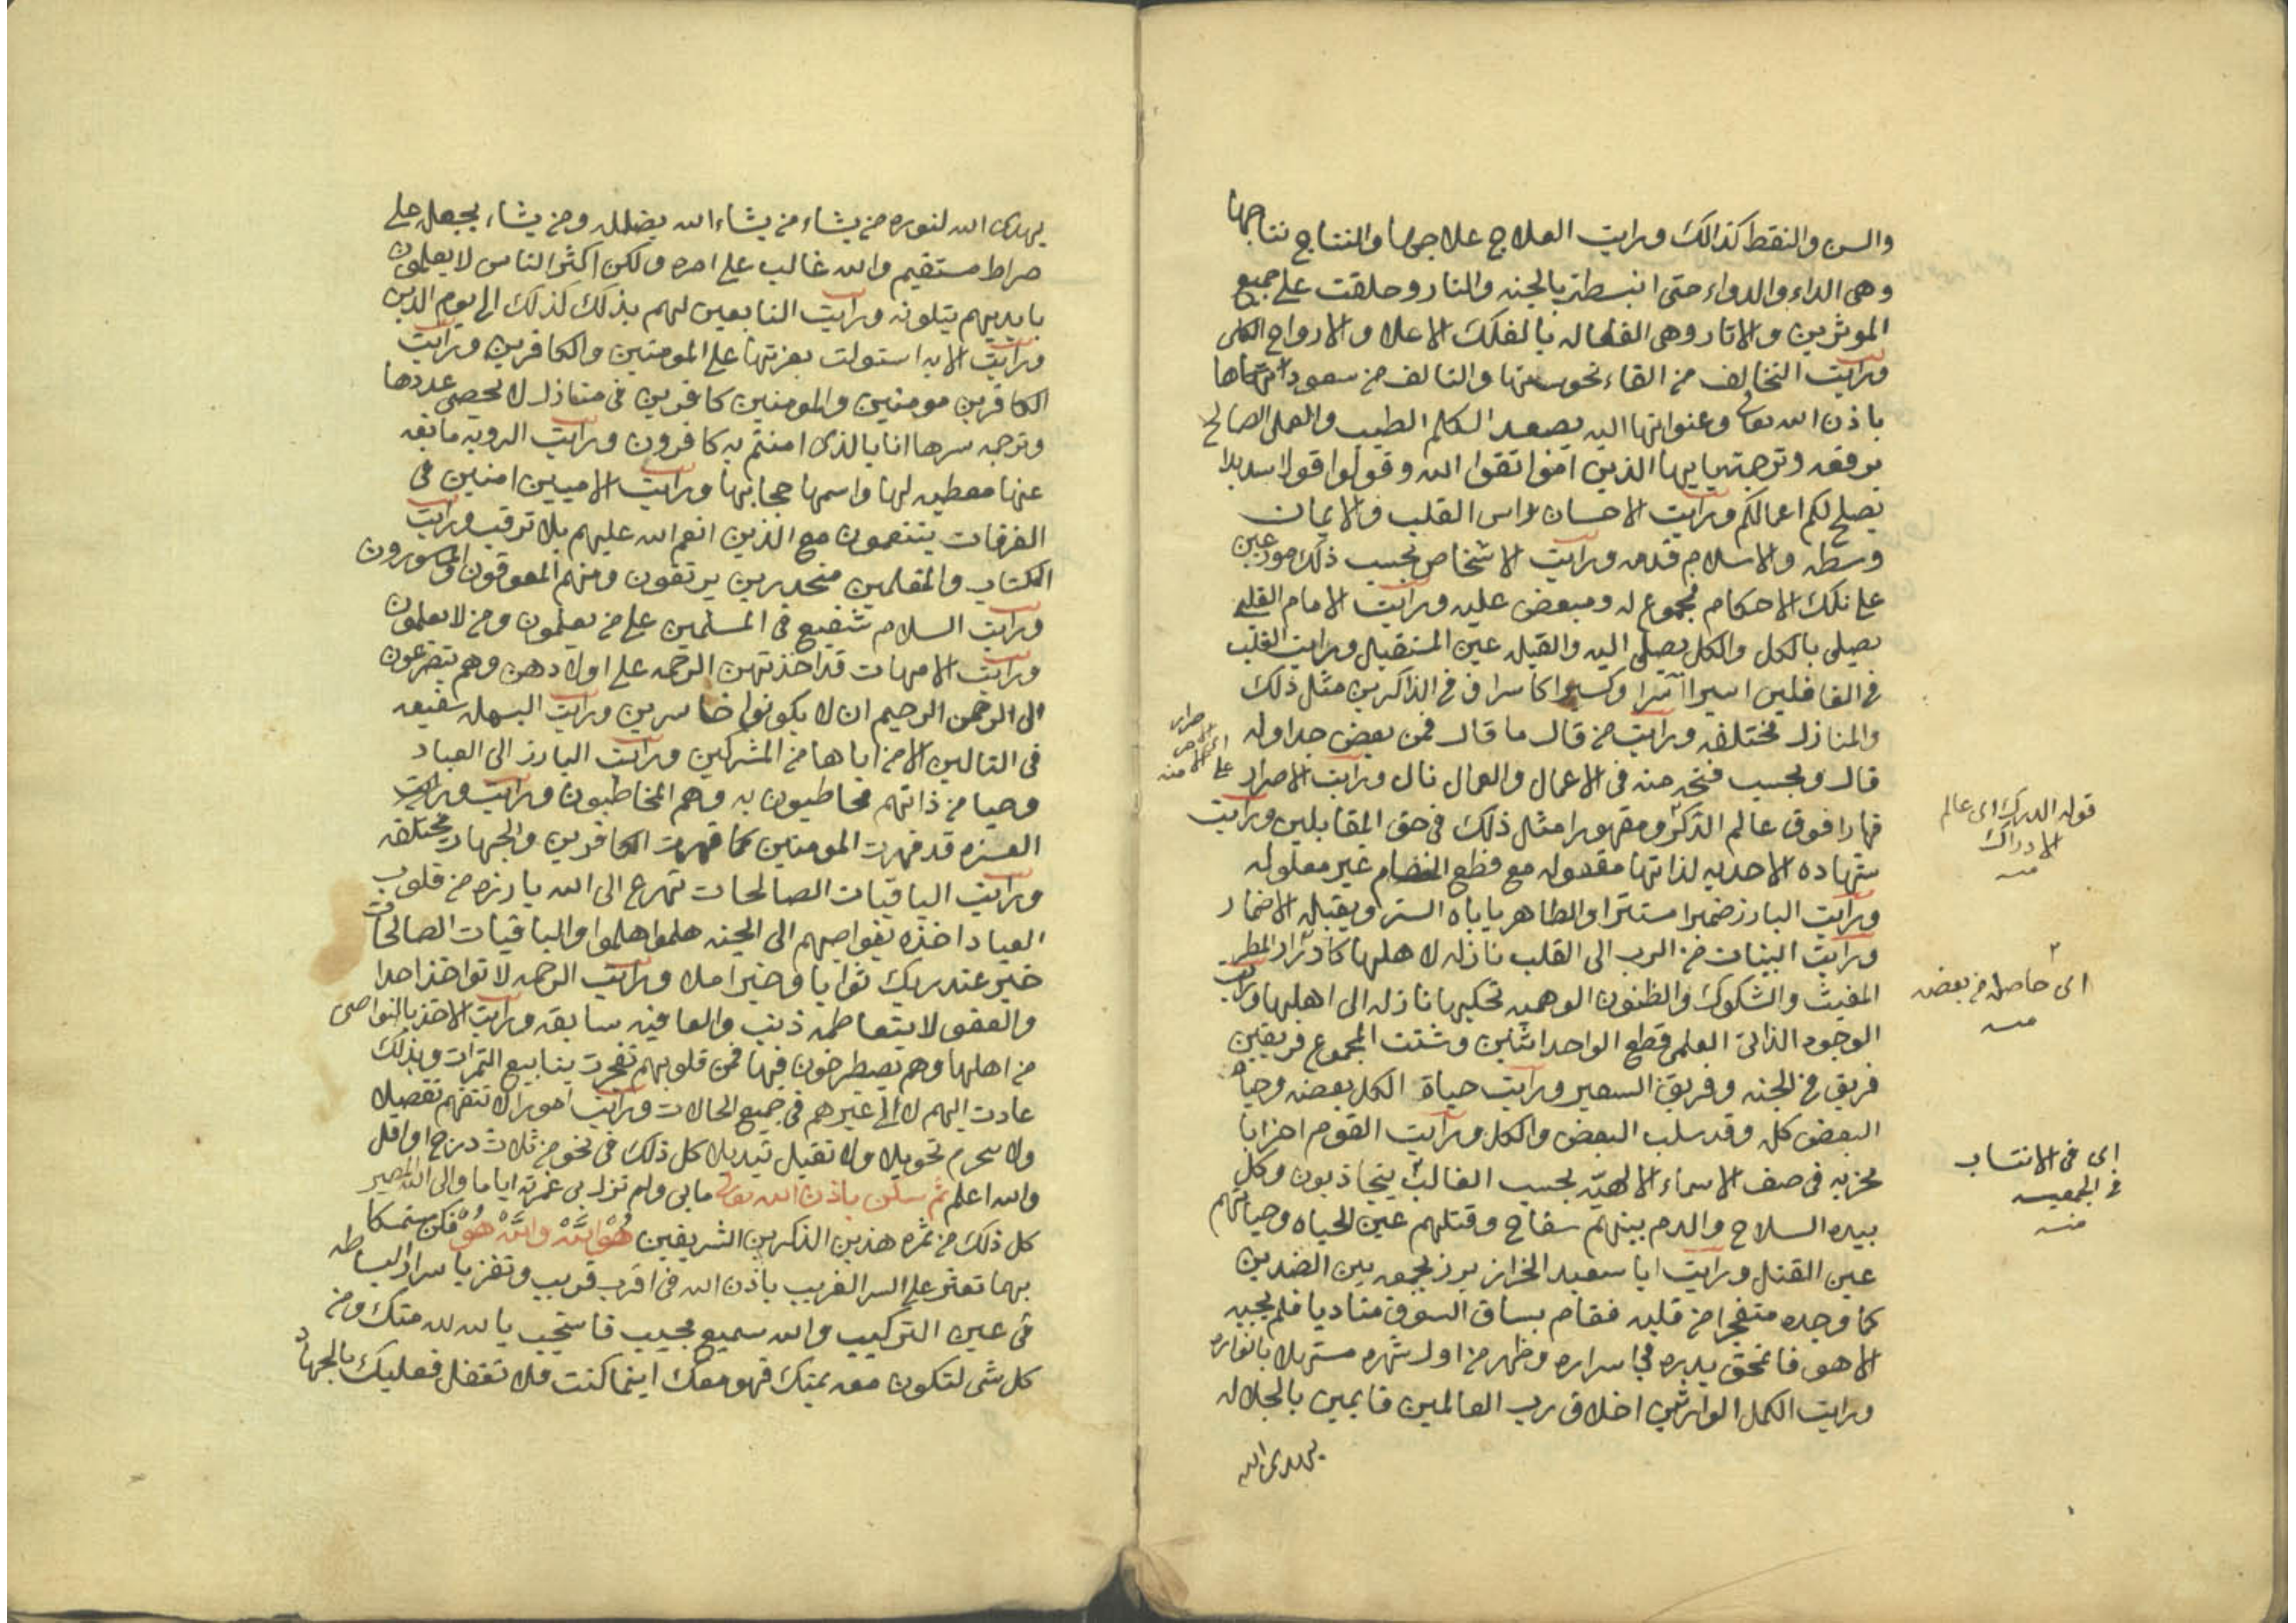 والسن والنقط كذالك ورايت العلاج علاجها والنتاج نتاجها
وهى الداء والدواء حتى انبسطت بالجنه والنار وحلقت على جميع
الموثرين والاثار وهى الفعاله بالفلك الاعلا والارواح
ورايت التخالف من القاء نحوستها والتالف من سعود
باذن الله تعالى وعنوانها اليه يصعد الكلم الطيب والعمل الصالح
يرفعه وترجمتها يايها الذين امنوا اتقوا الله وقولوا قولا سديدا
يصلح لكم اعمالكم ورايت الاحسان راس القلب والايمان
وسطه والاسلام قدمه ورايت الاشخاص بحسب ذلك مودعين
على تلك الاحكام مجموع له ومبعض عليه ورايت الامام القلب
يصلى بالكل والكل يصلى اليه والقبله عين المستقبل ورايت القلب
فى الغافلين اسيرا وكسيرا كاسرا فى الذاكرين مثل ذلك
والمنازل مختلفه ورايت من قال ما قال فمن بعض جداوله
قال وبحسب فتحه منه فى الاعمال والعمال نال ورايت الاصرار
قهارا فوق عالم الدرك ومقهورا مثل ذلك فى حق المقابلين ورايت
شهاده الاحديه لذاتها مقدوله مع قطع النضام غير معلوله
ورايت البارز ضميرا مستترا والظاهر ياباه الستر ويقبله الاضمار
ورايت البينات من الرب الى القلب نازله لاهلها كادرار المطر
المغيث والشكوك والظنون الوهميه تحكيها نازله الى اهلها ورايت
الوجود الذاتى العلمى قطع الواحد اثنين وشتت المجموع فريقين
فريق فى الجنه وفريق السعير ورايت حياة الكل بعضه وحياة
البعض كله وقد سلب البعض والكل ورايت القوم احزابا
محزبه فى صف الاسماء الالهيه بحسب الغالب يتجاذبون وكل
بيده السلاح والدم بينهم سفاح وقتلهم عين الحياه وحياتهم
عين القتل ورايت ابا سعيد الخراز برز بجمعه بين الضدين
كما وجده متفجرا من قلبه فقام بساق السوق مناديا فلم يجبه
الا هو فانمحق بدره فى اسراره وظهر من اول شهره مستهلا بانواره
ورايت الكمل الوارثين اخلاق رب العالمين قايمين بالجلاله
يهدى الله
على
منه
قوله الدرك اى عالم
الادراك
منه
اى حاصله من بعضه
منه
اى فى الانتساب
فى الجمعيه
منه
يهدى الله لنوره من يشاء من يشاء الله يضلله ومن يشاء يجعله على
صراط مستقيم والله غالب على امره ولكن اكثر الناس لا يعلمون
بايديهم يتلونه ورايت التابعين لهم بذلك كذلك الى يوم الدين
ورايت الايه استولت بعزتها على المومنين والكافرين ورايت
الكافرين مومنين والمومنين كافرين فى منازل لا يحصى عددها
وترجمه سرها انا بالذى امنتم به كافرون ورايت الرويه مانعه
عنها معطيه لها واسمها حجابها ورايت الاميين امنين فى
الغرفات يتنعمون مع الذين انعم الله عليهم بلا ترقب ورايت
الكتاب والمقلمين منحدرين يرتقون ومنهم المعوقون والمسورون
ورايت السلام شفيع فى المسلمين على من يعلمون ومن لا يعلمون
ورايت الامهات قد اخذتهن الرحمه على اولادهن وهم يتضرعون
الى الرحمن الرحيم ان لا يكونوا خاسرين ورايت البسمله شفيعه
فى التالين الا من اباها من المشركين ورايت البارز الى العباد
وحيا من ذاتهم مخاطبون به وهم المخاطبون ورايت
العزه قد قهرت المومنين كما قهرت الكافرين والجهات مختلفه
ورايت الباقيات الصالحات تهرع الى الله بارزه من قلوب
العباد اخذه بنواصيهم الى الجنه هلموا هلموا والباقيات الصالحات
خير عند ربك ثوابا وخير املا ورايت الرحمه لا تواخذ احدا
والعفو لا يتعاظمه ذنب والعافيه سابقه ورايت الاخذ بالنواصى
من اهلها وهم يصطرخون فيها فمن قلوبهم تفجرت ينابيع الثمرات وبذلك
عادت اليهم لا الى غيرهم فى جميع الحالات ورايت امورا لا تتفهم تفصيلا
ولا تحويلا ولا تقبل تبديلا كل ذلك فى نحو من ثلاث درج او اقل
والله اعلم ثم سكن باذن الله تعالى ما بى ولم تزل بى غمرته اياما والى الله المصير
كل ذلك من ثمره هذين الذكرين الشريفين هُوْ اَللَّهْ واَللَّهْ هُوْ فكن متمسكا
بهما تعثر على السر الغريب باذن الله فى اقرب قريب وتفز باسرار البساطه
فى عين التركيب والله سميع مجيب فاستجب يا لله منك ومن
كل شى لتكون معه بمتك فهو معك اينما كنت فلا تغفل فعليك بالجهاد